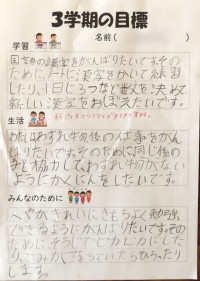 3学期の目標
名前（　　　　　）
学習
国語の漢字をがんばりたいです。その
ために、ノートに漢字をかいて練習
したり、1日に3つなど数を決めて
新しい漢字をおぼえたいです。
生活
わたしはわすれ物係の仕事をがん
ばりたいです。そのために同じ係の
人と協力して、わすれ物がない
ようにかくにんをしたいです。
みんなのために
へやがきれいにきもちよく勉強
できるようにがんばりたいです。その
ために、そうじでピカピカにした
り、ごみが落ちていたらひろったり
します。